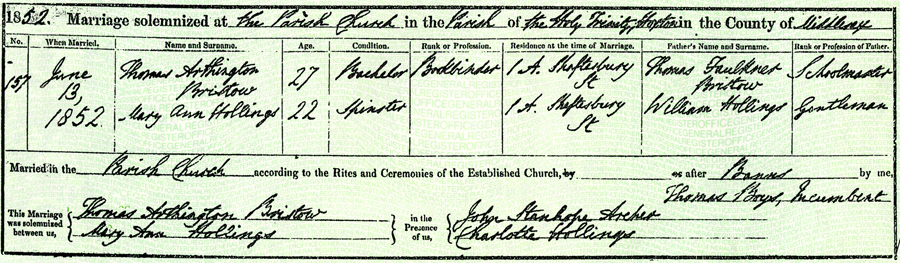 1852. Marriage solemnized at the Parish Church in the Parish of the Holy Trinity, Hoxton in the County of Middlesex
No. When Married. Name and Surname. Age. Condition. Rank or Profession. Residence at the time of Marriage. Father's Name and Surname. Rank or Profession of Father.
157 June 13, 1852. Thomas Arthington Bristow 27 Bachelor Bookbinder 1 A. Shaftesbury St Thomas Faulkner Bristow Schoolmaster
Mary Ann Hollings 22 Spinster 1 A. Shaftesbury St William Hollings Gentleman
Married in the Parish Church according to the Rites and Ceremonies of the Established Church, by or after Banns by me,
Thomas Boys, Incumbent
This Marriage was solemnized between us, Thomas Arthington Bristow
Mary Ann Hollings
in the Presence of us, John Stanhope Archer
Charlotte Hollings